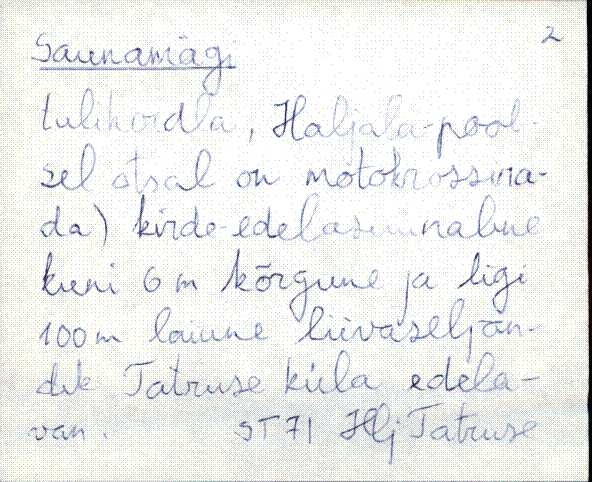 2
Saunamägi
tulihordla, Haljala-pool-
sel otsal on motokrossira-
da) kirde-edelasuunaline
kuni 6 m kõrgune ja ligi
100 m laiune liivaseljan-
dik Tatruse küla edela-
van. ST71 Hlj Tatruse